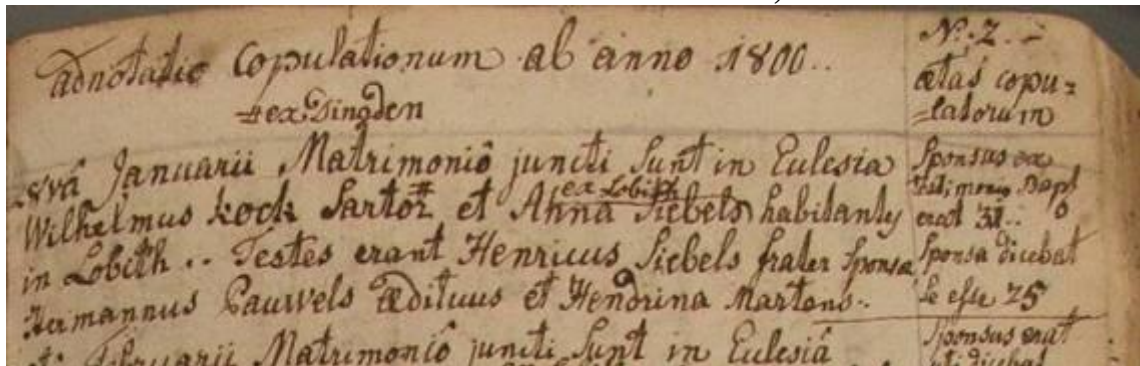 adnotatio Copulationum ab anno 1800..
# ex Dingden
28vâ Januarii Matrimoniô juncti sunt in Eclesia
Wilhelmus kock Sartor # et Anna Siebels habitants
ex Lobith
in Lobith .. Testes erant Henricus Siebels frater sponsa
Hermannus Pauwels Ædituus et Hendrina Martens..
Februarii Matrimoniô juncti sunt in Eclesiâ
N.o 2. -
ætas copu=
=latorum
Sponsus ex
Bapt
erat 31..
Sponsa dicebat
se esse 25
Sponsus erat
uti dicebat